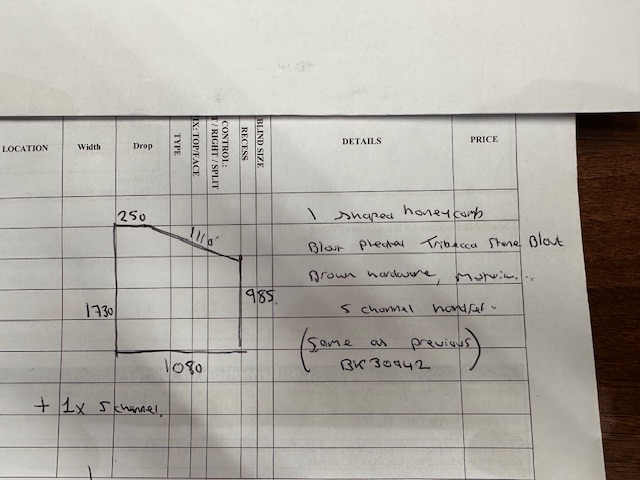 LOCATION
Width
Drop
TYPE
FIX: TOP/FACE
CONTROL:
T / RIGHT / SPLIT
RECESS
BLIND SIZE
DETAILS
PRICE
250
1110
1730
985
1080
1 shaped honeycomb
Blout pleated Tribecca Stone Blout
Brown hardware,
5 channel handset.
(Same as previous)
BK30942
+ 1x 5 channel.